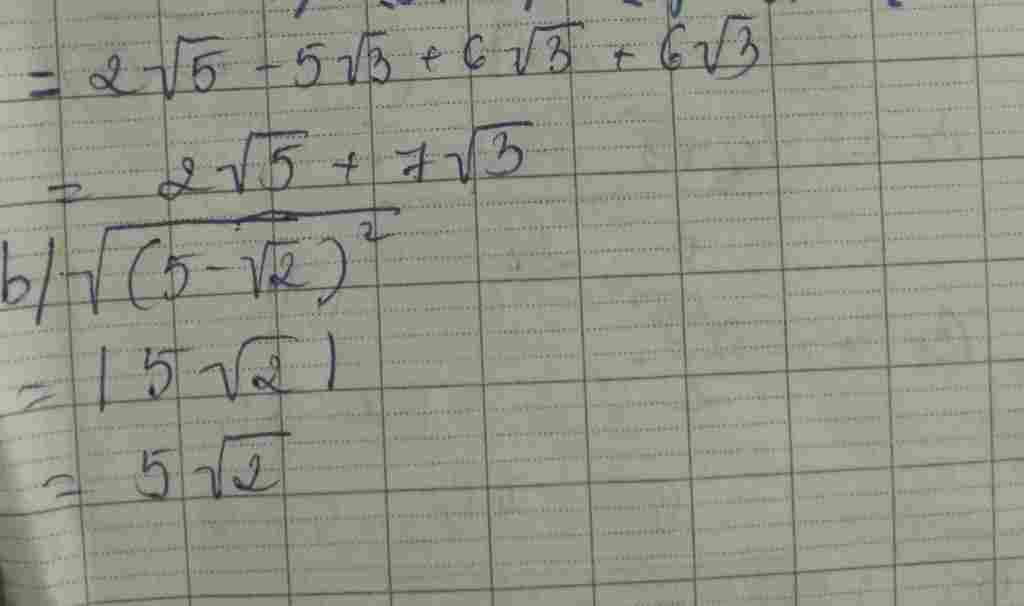 = 2√5 - 5√3 + 6√3 + 6√3
= 2√5 + 7√3
b/ √(5-√2)²
= |5 √2|
= 5√2